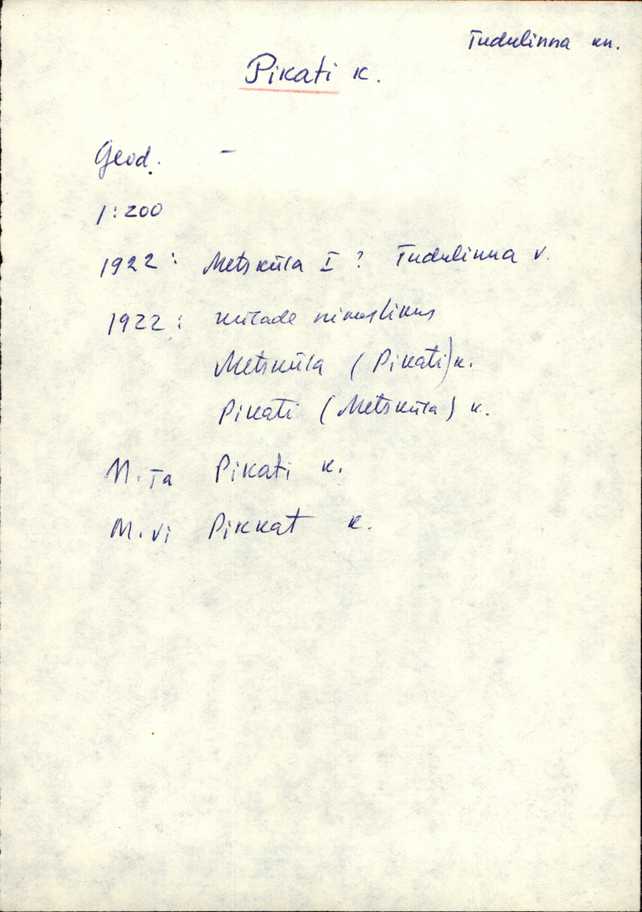 Tudulinna kn.
Pikati k.
Geod. -
1:200
1922: Metsküla I ? Tudulinna v.
1922: külade nimestikus
Metsküla (Pikati) k.
Pikati (Metsküla) k.
M.Ta Pikati k.
M.vi Pikkat k.